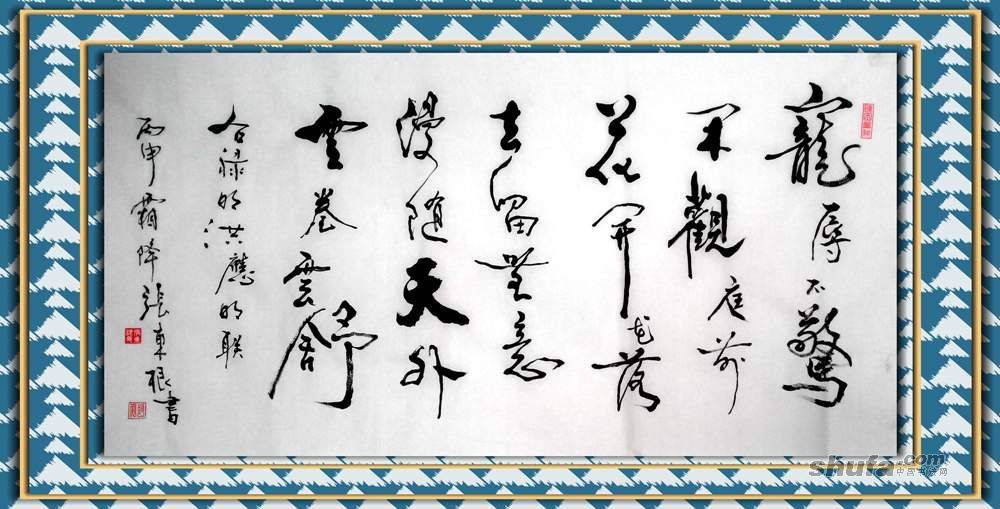 寵辱不驚
闲觀庭前
花開花落
去留無意
漫随天外
雲卷雲舒
录明洪應明联
丙申霜降張東根書
shufa.com
中国书法网